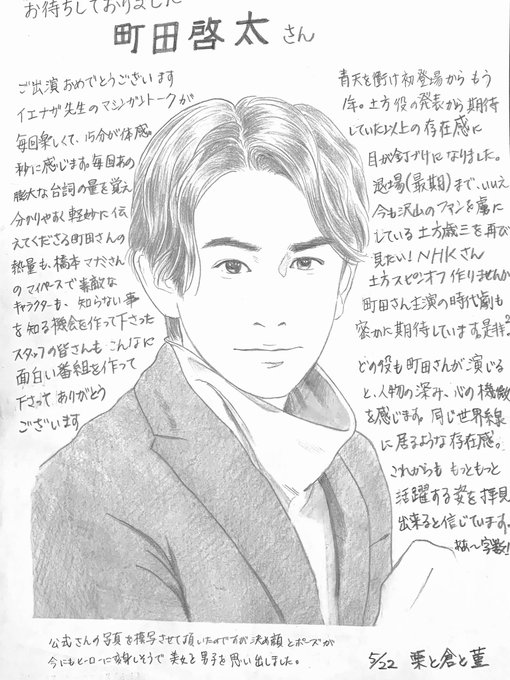 お待ちしておりました
町田啓太さん
ご出演おめでとうございます
イエナガ先生のマシンガントークが
毎回楽しくて、15分が体感。
秒に感じます。毎回あの
膨大な台詞の量を覚え
分かりやすく軽妙に伝
えてくださる町田さんの
熱量も、橋本マナミさん
のマイペースで素敵な
キャラクターも、知らない事
を知る機会を作って下さった
スタッフの皆さんも、こんなに
面白い番組を作って
下さって ありがとう
ございます
青天を衝け初登場から もう
1年。土方役の発表から 期待
していた以上の存在感に
目が釘づけになりました。
退場(最期)まで、いいえ
今も沢山のファンを虜に
している 土方歳三を再び
見たい！NHKさん
土方スピンオフ作りませんか
町田さん主演の時代劇も
密かに期待しています。是非
どの役も町田さんが演じる
と、人物の深み、心の機微
を感じます。同じ世界線
に居るような存在感。
これからも もっともっと
活躍する姿を拝見
出来ると信じています。
公式さんの写真を模写させて頂いたのですが 決め顔とポーズが
今にもヒーローに変身しそうで 美女と男子を思い出しました。
5/22 栗と倉と菫